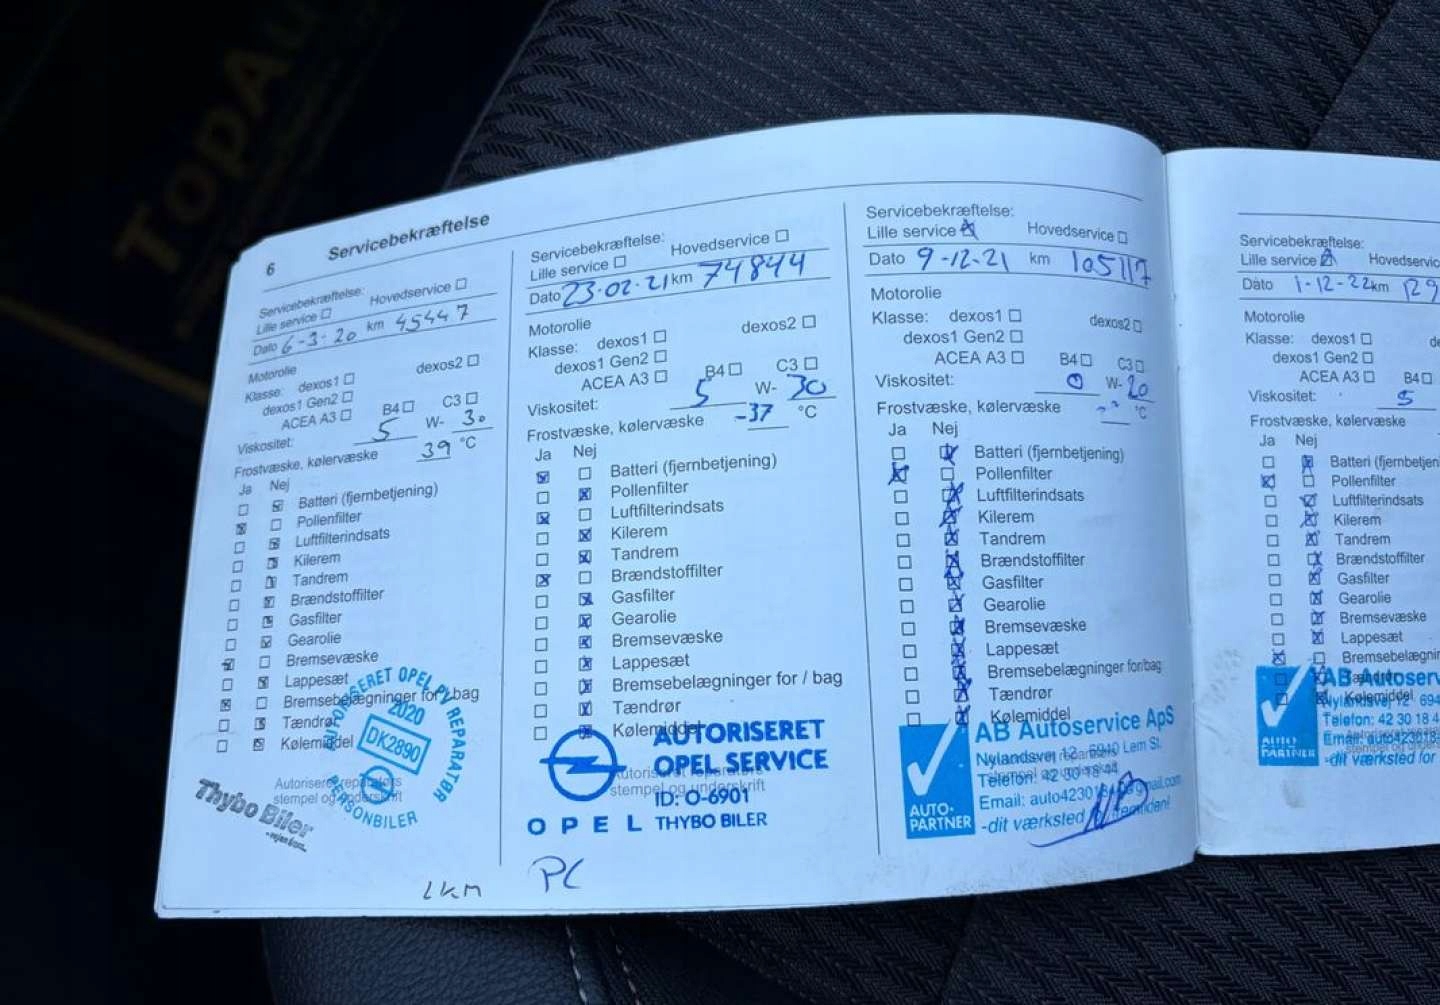 TopAu
6
Servicebekræftelse
Servicebekræftelse:
Lille service Hovedservice
Dato 6-3-20 km 45447
Motorolie
Klasse: dexos1 dexos2
dexos1 Gen2
ACEA A3 B4 C3
Viskositet: 5 W- 30
Frostvæske, kølervæske 39 °C
Ja Nej
Batteri (fjernbetjening)
Pollenfilter
Luftfilterindsats
Kilerem
Tandrem
Brændstoffilter
Gasfilter
Gearolie
Bremsevæske
Lappesæt
Bremsebelægninger for / bag
Tændrør
Kølemiddel
Autoriseret reparatørs
stempel og underskrift
AUTORISERET OPEL PV REPARATØR
2020
DK2890
PERSONBILER
Thybo Biler
LKM
Servicebekræftelse:
Lille service Hovedservice
Dato 23-02-21 km 74844
Motorolie
Klasse: dexos1 dexos2
dexos1 Gen2
ACEA A3 B4 C3
Viskositet: 5 W- 30
Frostvæske, kølervæske -37 °C
Ja Nej
Batteri (fjernbetjening)
Pollenfilter
Luftfilterindsats
Kilerem
Tandrem
Brændstoffilter
Gasfilter
Gearolie
Bremsevæske
Lappesæt
Bremsebelægninger for / bag
Tændrør
Kølemiddel
Autoriseret reparatørs
stempel og underskrift
AUTORISERET
OPEL SERVICE
ID: O-6901
OPEL THYBO BILER
PC
Servicebekræftelse:
Lille service Hovedservice
Dato 9-12-21 km 105117
Motorolie
Klasse: dexos1 dexos2
dexos1 Gen2
ACEA A3 B4 C3
Viskositet: 0 W- 20
Frostvæske, kølervæske °C
Ja Nej
Batteri (fjernbetjening)
Pollenfilter
Luftfilterindsats
Kilerem
Tandrem
Brændstoffilter
Gasfilter
Gearolie
Bremsevæske
Lappesæt
Bremsebelægninger for/bag
Tændrør
Kølemiddel
AB Autoservice ApS
Nylandsvej 12 - 6940 Lem St.
Telefon: 42 30 18 44
Email: auto42301844@gmail.com
-dit værksted
AUTO-
PARTNER
Servicebekræftelse:
Lille service Hovedservic
Dato 1-12-22 km 129
Motorolie
Klasse: dexos1 de
dexos1 Gen2
ACEA A3 B4
Viskositet: 5
Frostvæske, kølervæske
Ja Nej
Batteri (fjernbetjen
Pollenfilter
Luftfilterindsats
Kilerem
Tandrem
Brændstoffilter
Gasfilter
Gearolie
Bremsevæske
Lappesæt
Bremsebelægnin
Tændrør
Kølemiddel
AB Autoserv
Nylandsvej 12 694
Telefon: 42 30 18 4
Email: auto423018
-dit værksted for
AUTO-
PARTNER